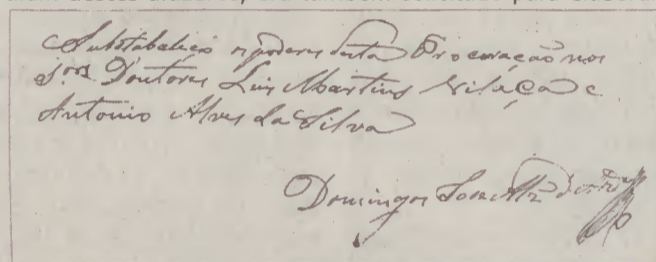 Substabaleço os poderes desta Procuração nos
S.res Doutores Luis Martins Vilaça e
Antonio Alves da Silva
Domingos Jose